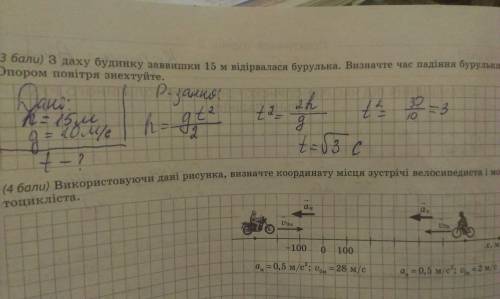 3 бали) З даху будинку заввишки 15 м відірвалася бурулька. Визначте час падіння бурульк
Опором повітря знехтуйте.
Дано:
h = 15м
g = 10 м/с
t - ?
Р-зання:
h = gt²/2
t² = 2h/g
t² = 30/10 = 3
t = √3 с
(4 бали) Використовуючи дані рисунка, визначте координату місця зустрічі велосипедиста і мо
тоцикліста.
-100 0 100
x, м
aм = 0,5 м/с²; v₀м = 28 м/с
= 0,5 м/с²; = 2 м/с